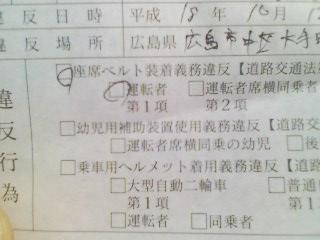 違反日時 平成 18年 10月 1
違反場所 広島県 広島市中区大手
違反行為
□座席ベルト装着義務違反【道路交通法
□運転者 □運転者席横同乗者
第1項 第2項
□幼児用補助装置使用義務違反【道路交
□運転者席横同乗の幼児 □後
□乗車用ヘルメット着用義務違反【道路
□大型自動二輪車 □普通
第1項 第1
□運転者 □同乗者